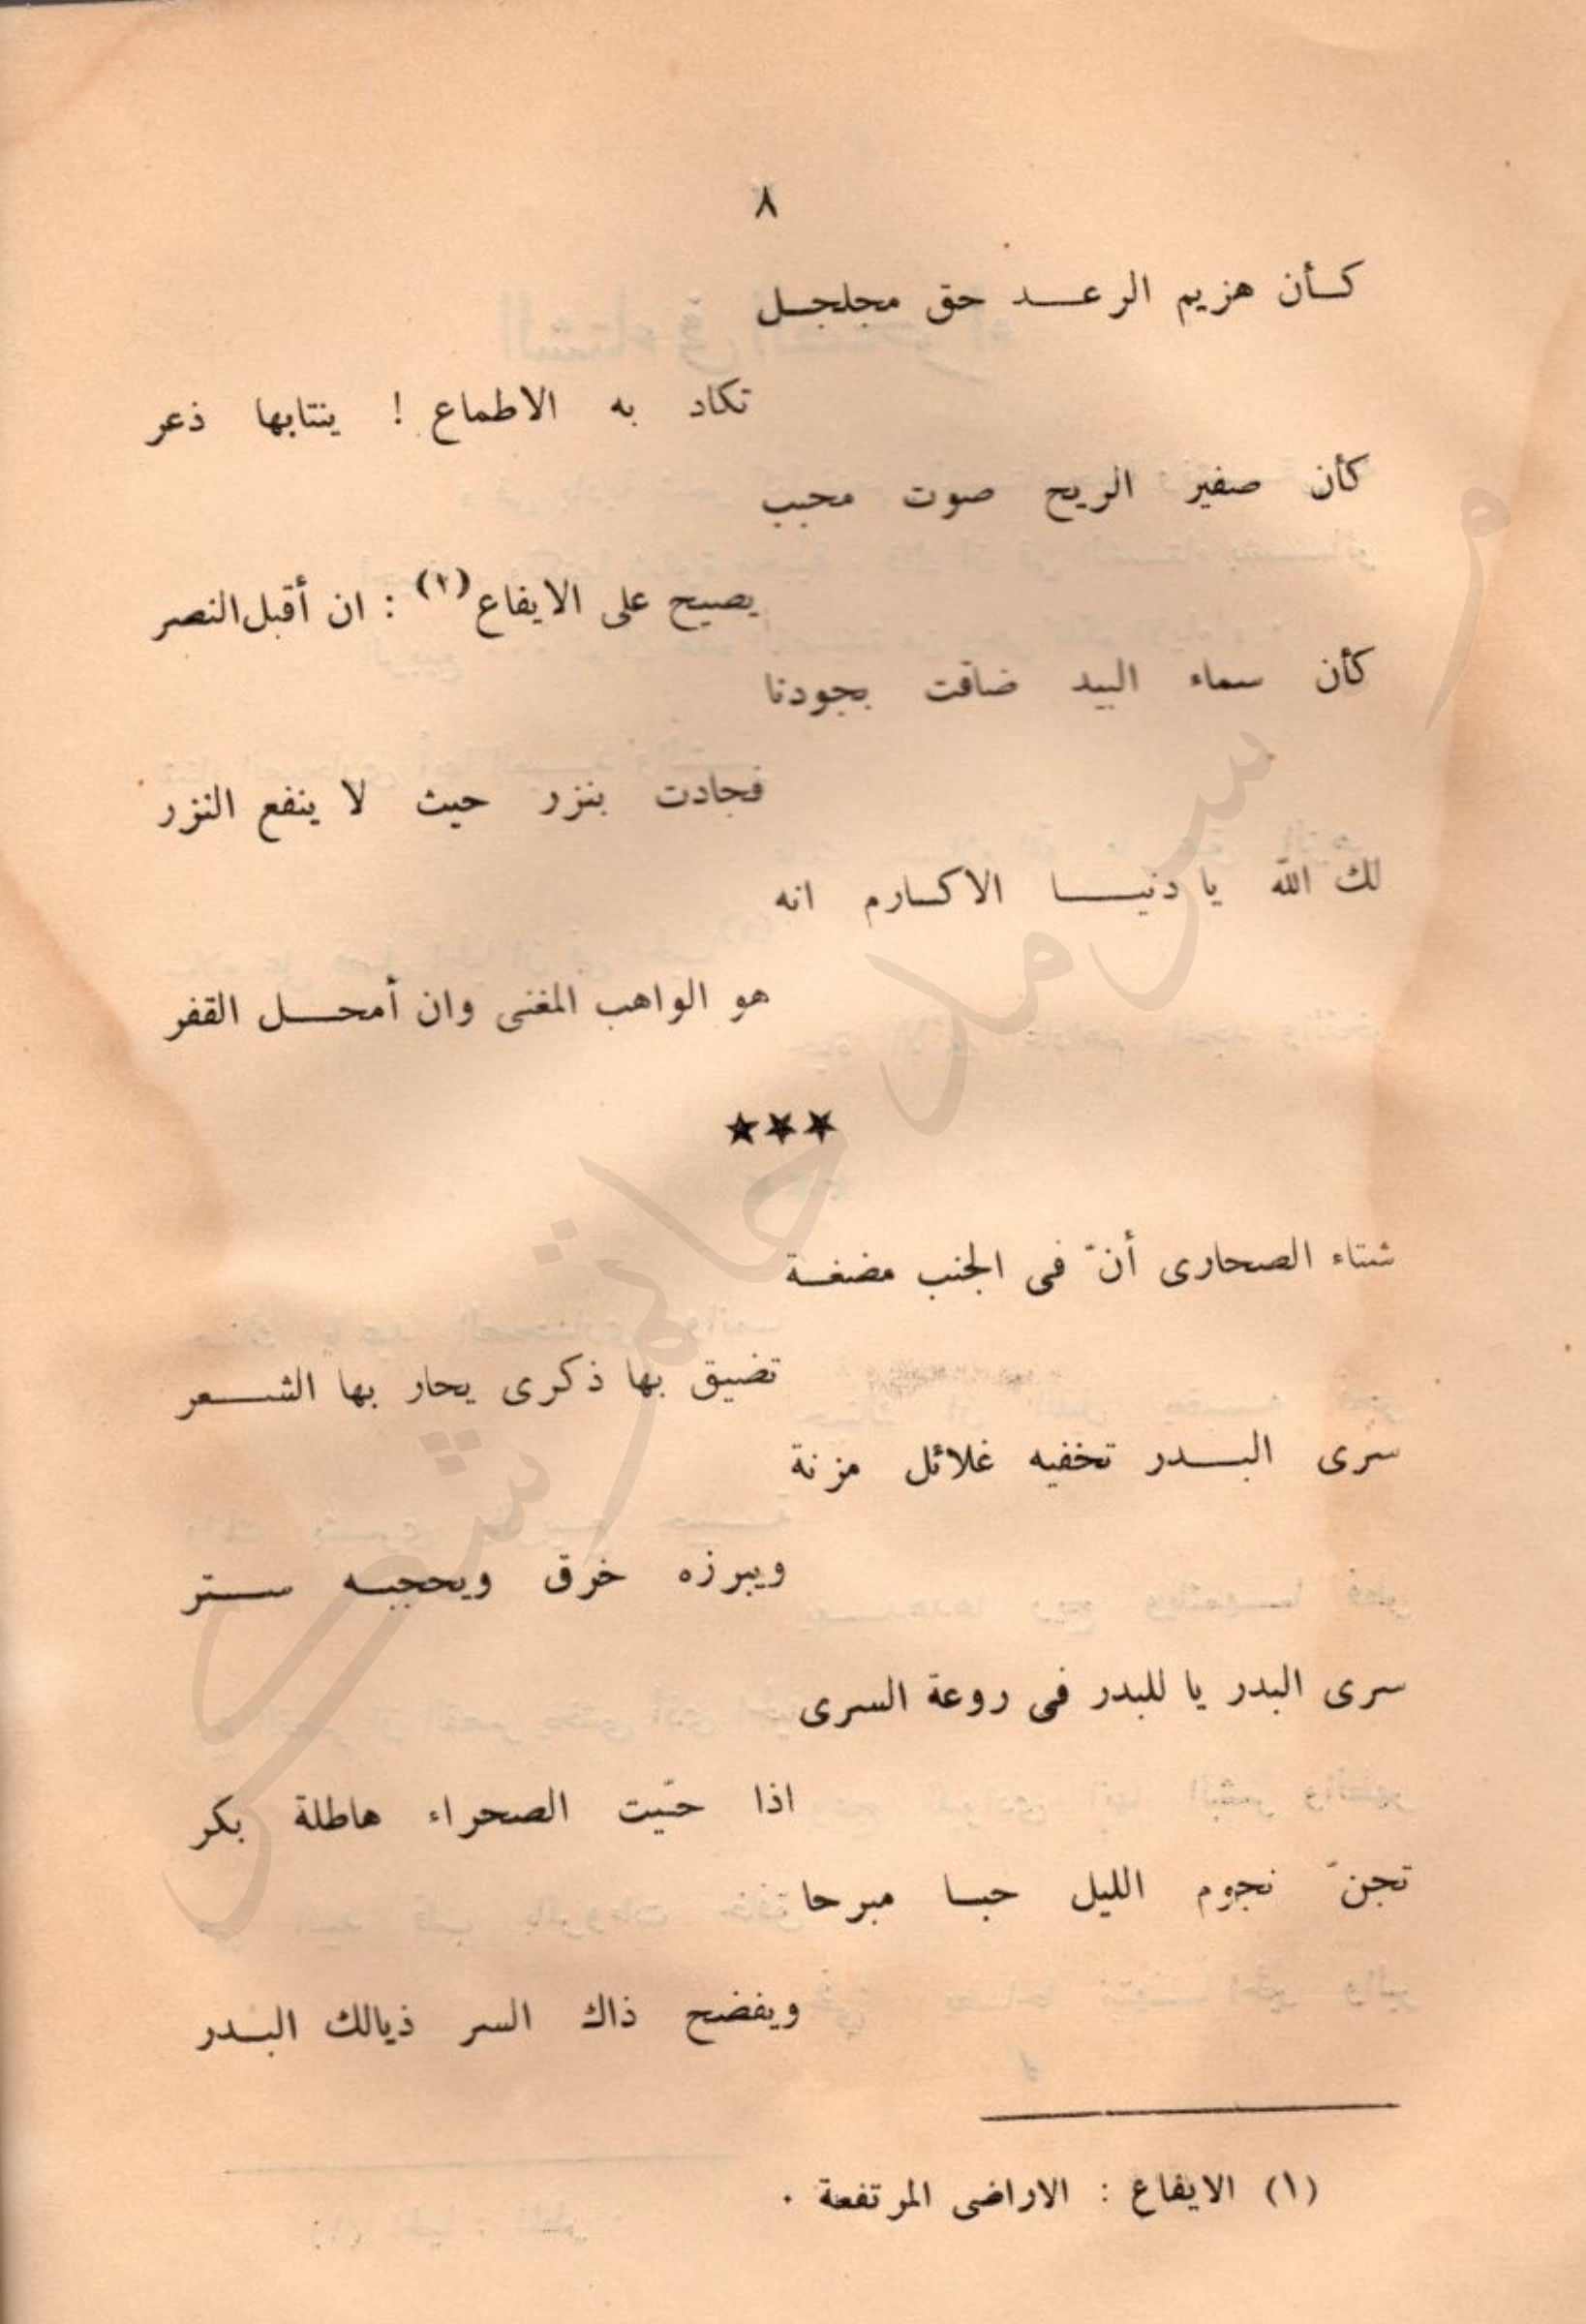 ٨
كأن هزيم الرعد حق مجلجل
تكاد به الاطماع ! ينتابها ذعر
كأن صفير الريح صوت محبب
يصيح على الايفاع (١) : ان أقبل النصر
كأن سماء البيد ضاقت بجودنا
فجادت بنزر حيث لا ينفع النزر
لك الله يا دنيا الاكارم انه
هو الواهب المغنى وان أمحل القفر
★★★
شتاء الصحارى أنّ فى الجنب مضغة
تضيق بها ذكرى يحار بها الشعر
سرى البدر تخفيه غلائل مزنة
ويبرزه خرق ويحجبه ستر
سرى البدر يا للبدر فى روعة السرى
اذا حيّت الصحراء هاطلة بكر
تجنّ نجوم الليل حبا مبرحا
ويفضح ذاك السر ذيالك البدر
(١) الايفاع : الاراضى المرتفعة .
سرمد حاتم شكر